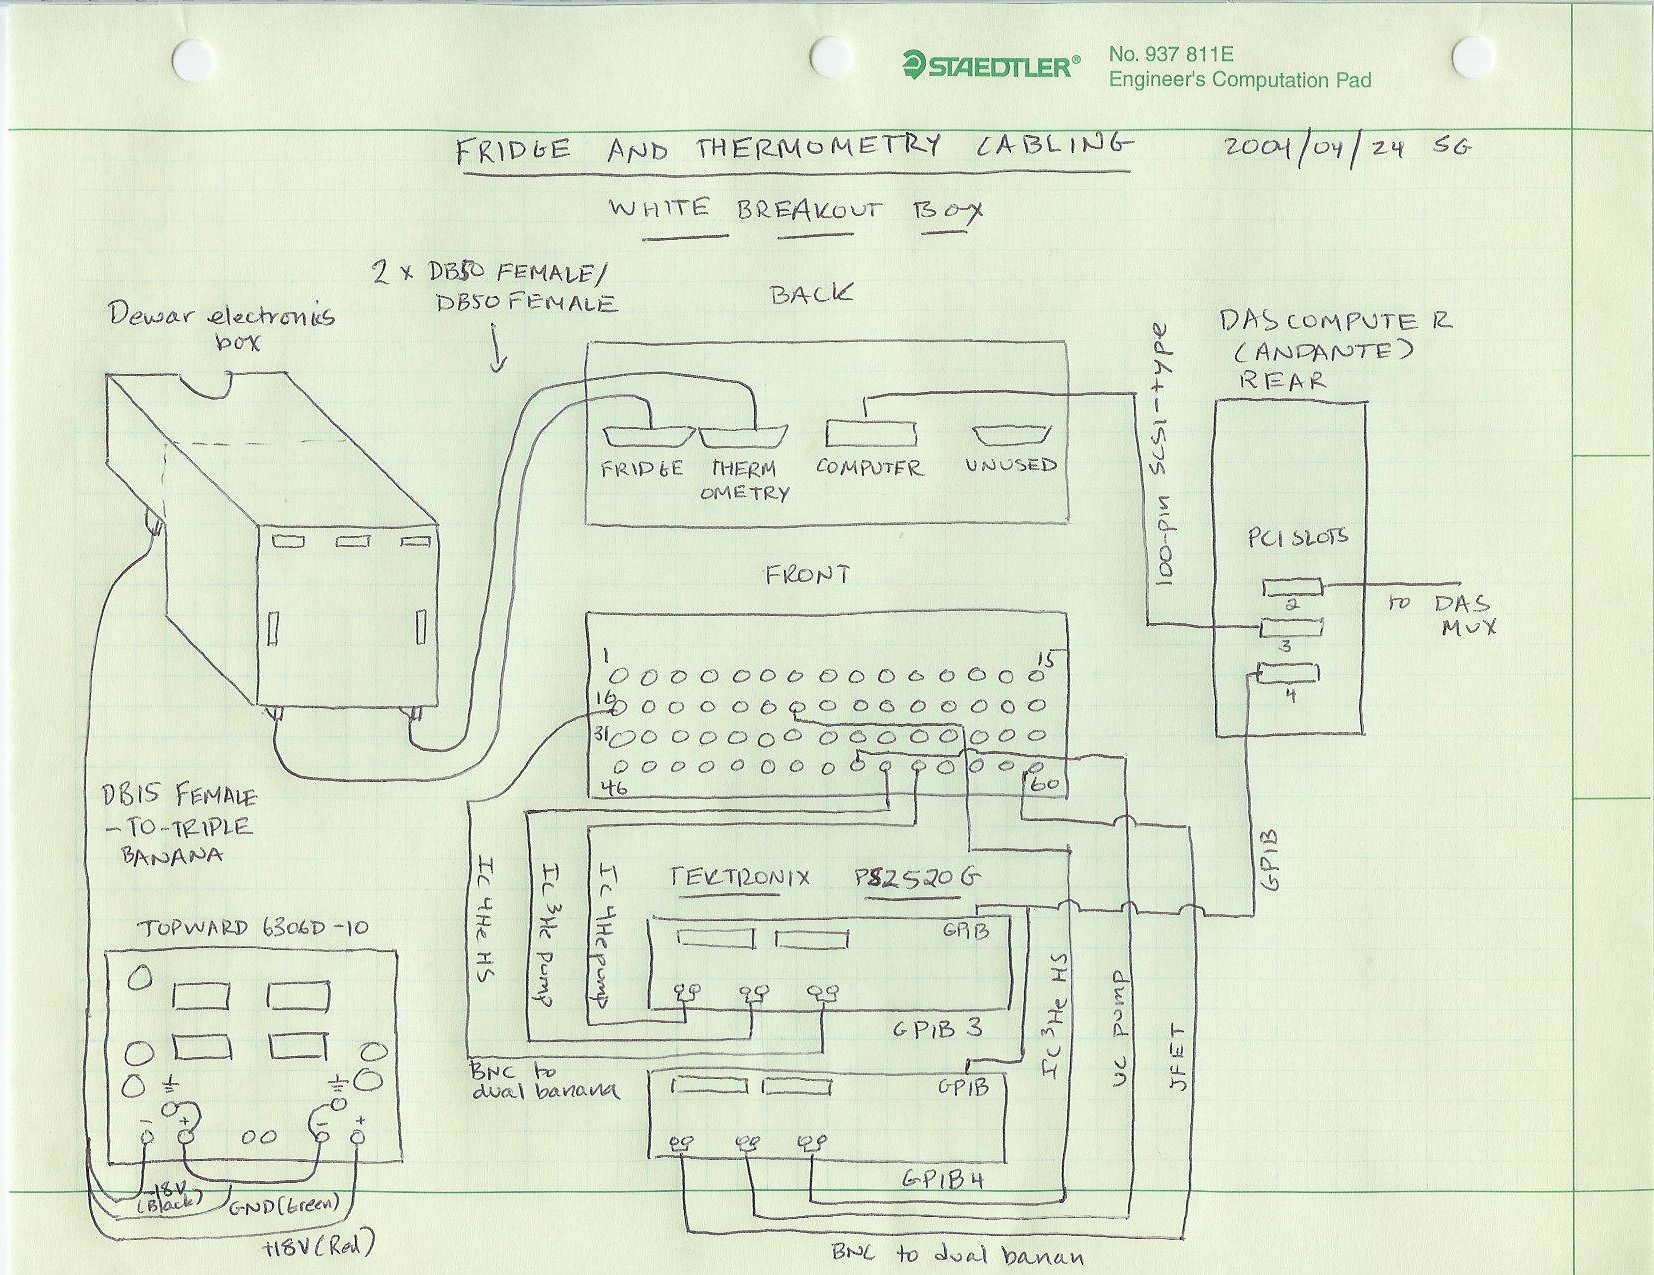 STAEDTLER® No. 937 811E
Engineer's Computation Pad
FRIDGE AND THERMOMETRY CABLING 2004/04/24 SG
WHITE BREAKOUT BOX
2 x DB50 FEMALE/
DB50 FEMALE
BACK
Dewar electronics
box
DAS COMPUTER
(ANDANTE)
REAR
100-pin SCSI-type
FRIDGE
THERM
OMETRY
COMPUTER
UNUSED
PCI SLOTS
2
3
4
to DAS
MUX
FRONT
1
15
16
31
46
60
DB15 FEMALE
-TO-TRIPLE
BANANA
GPIB
Ic 4He HS
Ic 3He pump
Ic 4He pump
TEKTRONIX PS2520G
GPIB
GPIB 3
Ic 3He HS
UC pump
JFET
BNC to
dual banana
GPIB
GPIB 4
BNC to dual banan
TOPWARD 6306D-10
-
+
-
+
-18V
(Black)
GND (Green)
+18V (Red)